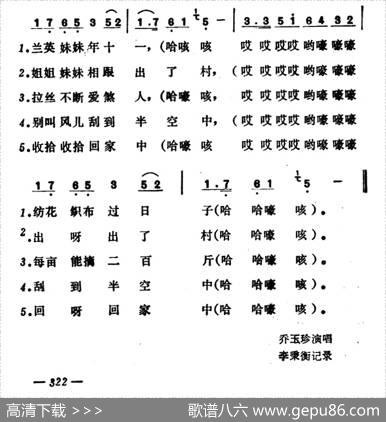 1 7 6 5 3 5 2 | 1.7 6 1 5 - | 3.3 5 i 6 4 3 2
1.兰英妹妹年十 一,(哈咳 咳 哎哎哎哎哟嚎嚎嚎
2.姐姐妹妹相跟 出了村,(哎哎哎哎哟嚎嚎嚎
3.拉丝不断爱煞 人,(哈咳 咳 哎哎哎哎哟嚎嚎嚎
4.别叫风儿刮到 半空中,(哎哎哎哎哟嚎嚎嚎
5.收拾收拾回家 中(哈咳 咳 哎哎哎哎哟嚎嚎嚎
1 7 6 5 3 5 2 | 1.7 6 1 5 -
1.纺花织布过日 子(哈哈嚎咳)。
2.出呀出了 村(哈哈嚎咳)。
3.每亩能摘二百 斤(哈哈嚎咳)。
4.刮到半空 中(哈哈嚎咳)。
5.回呀回家 中(哈哈嚎咳)。
乔玉珍演唱
李秉衡记录
— 322 —
高清下载 >>> 歌谱八六 www.gepu86.com